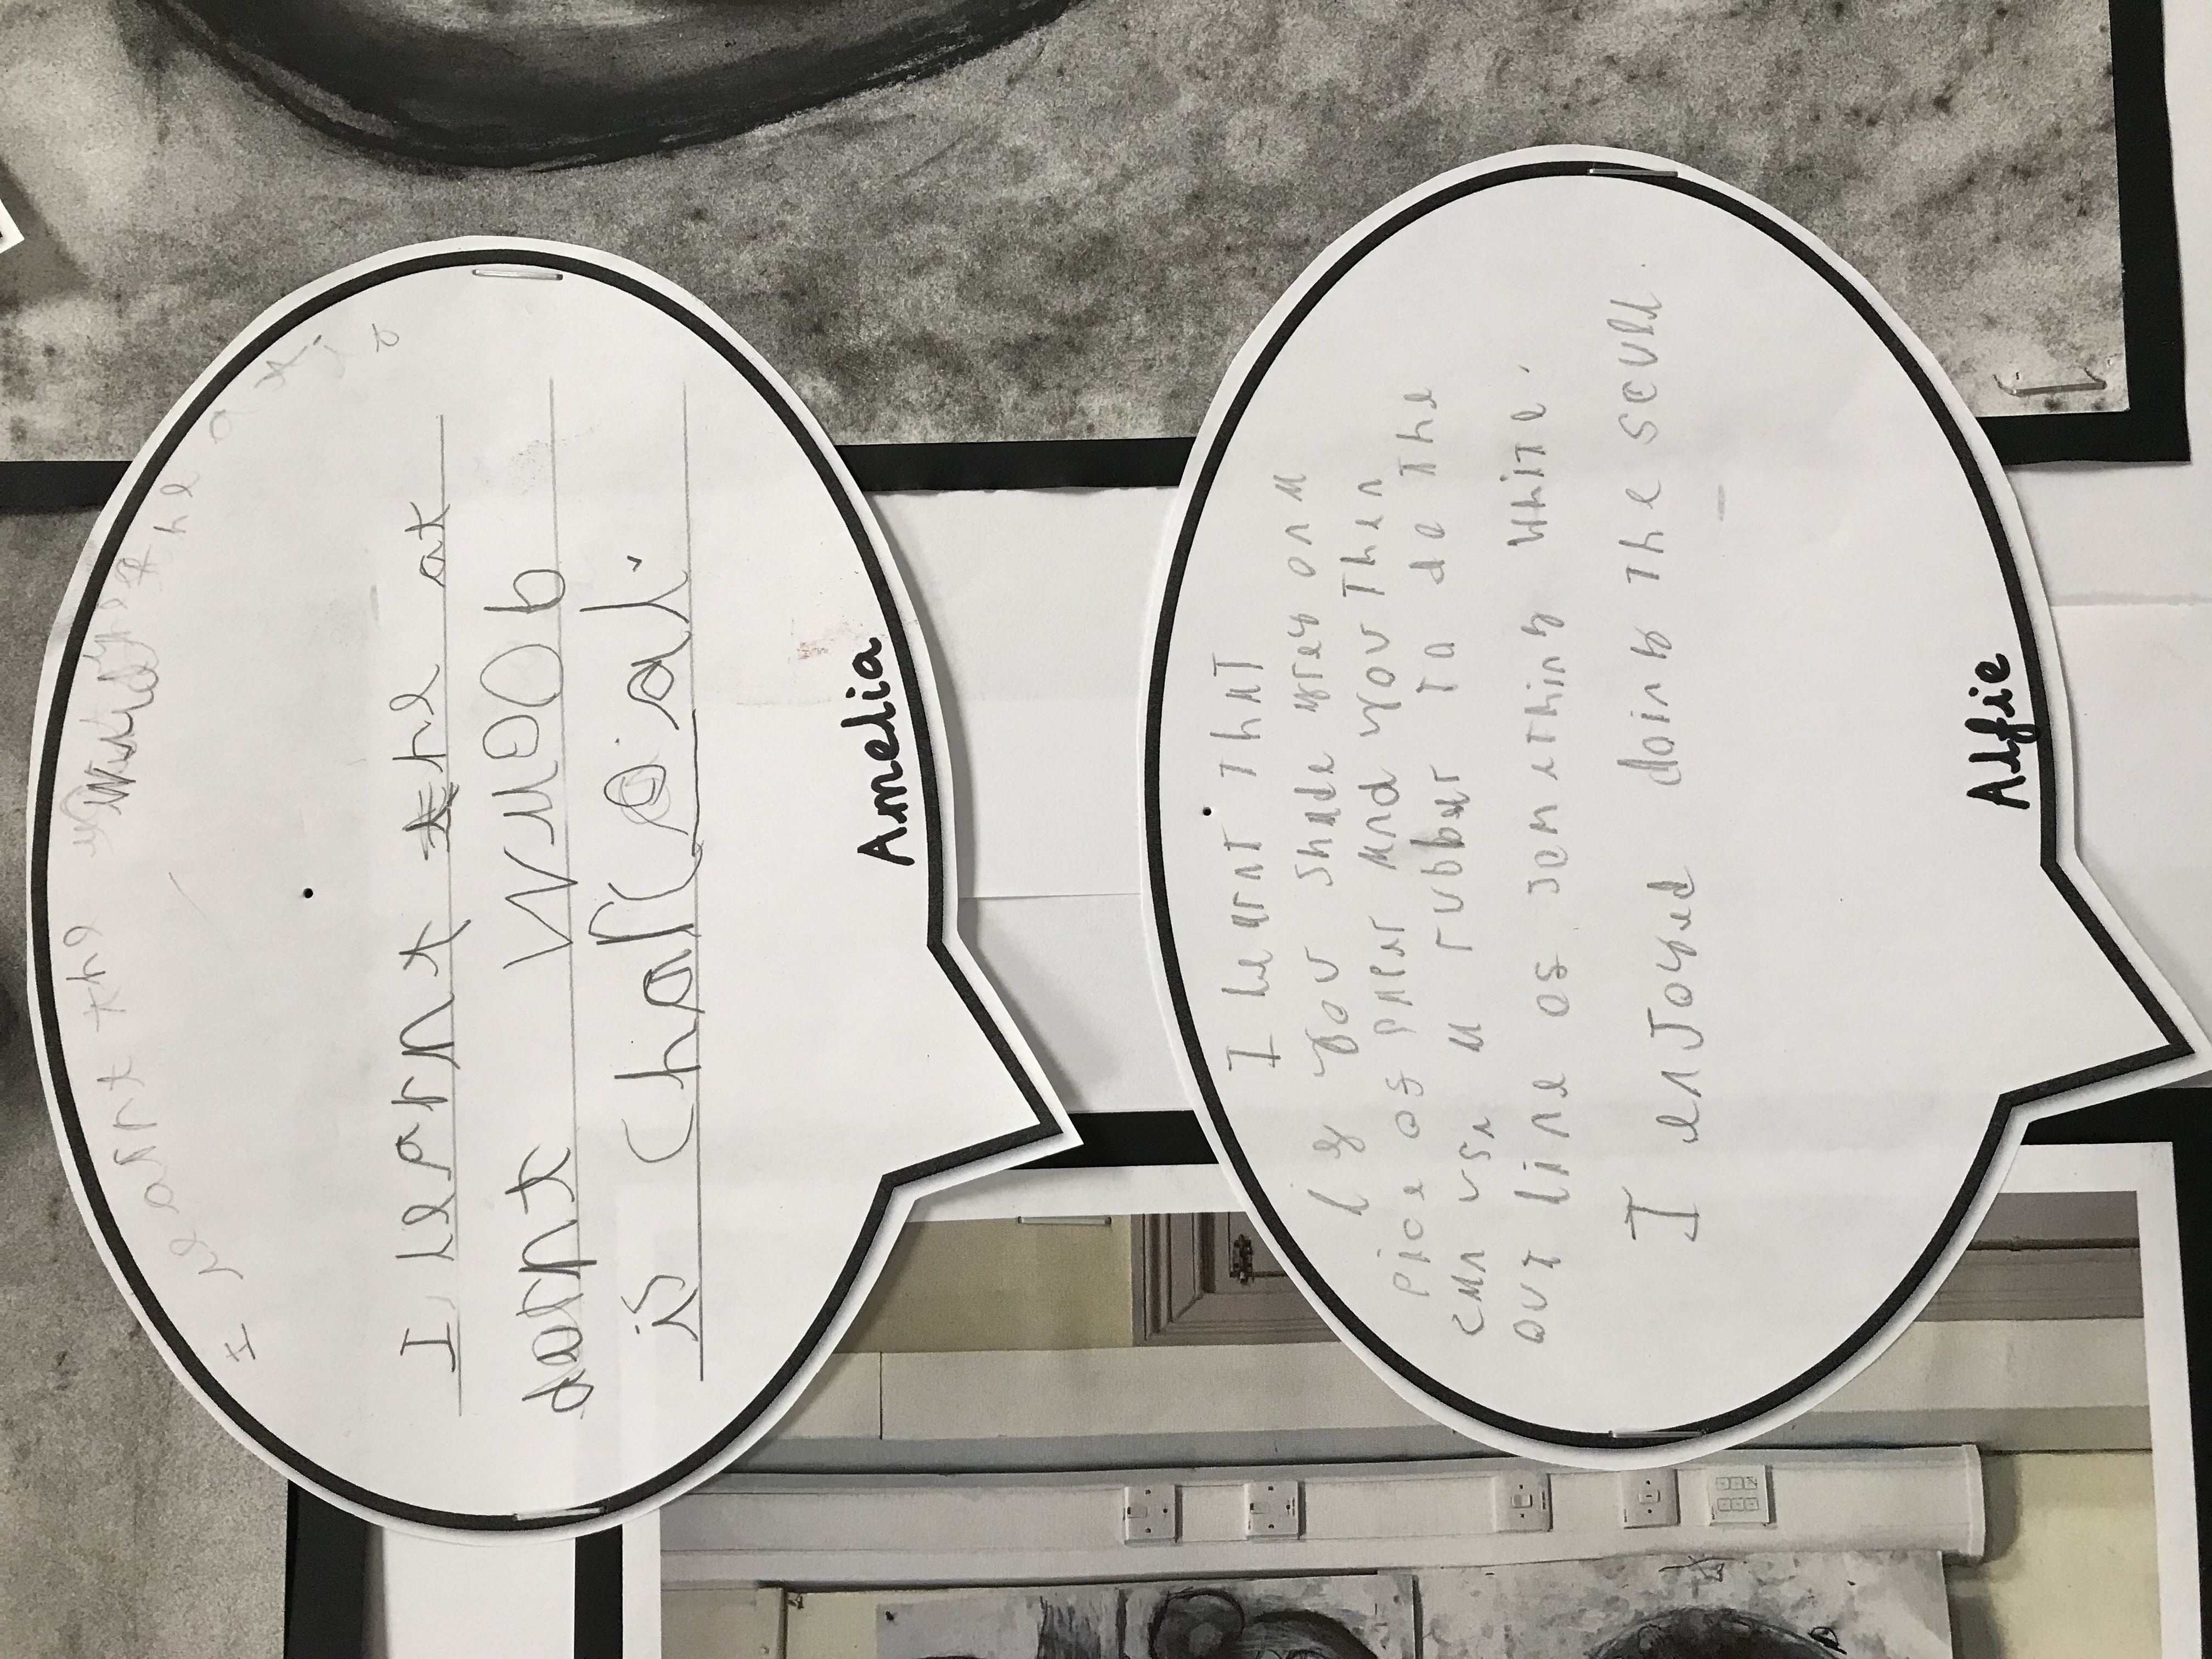 I leart the
I learnt the at
darnt
is Charcoal.
Amelia
I learnt that
if you shade grey on a
pice of paper and you then
can use a rubber to do the
out line of something white.
I enjoyed doing the scull.
Alfie